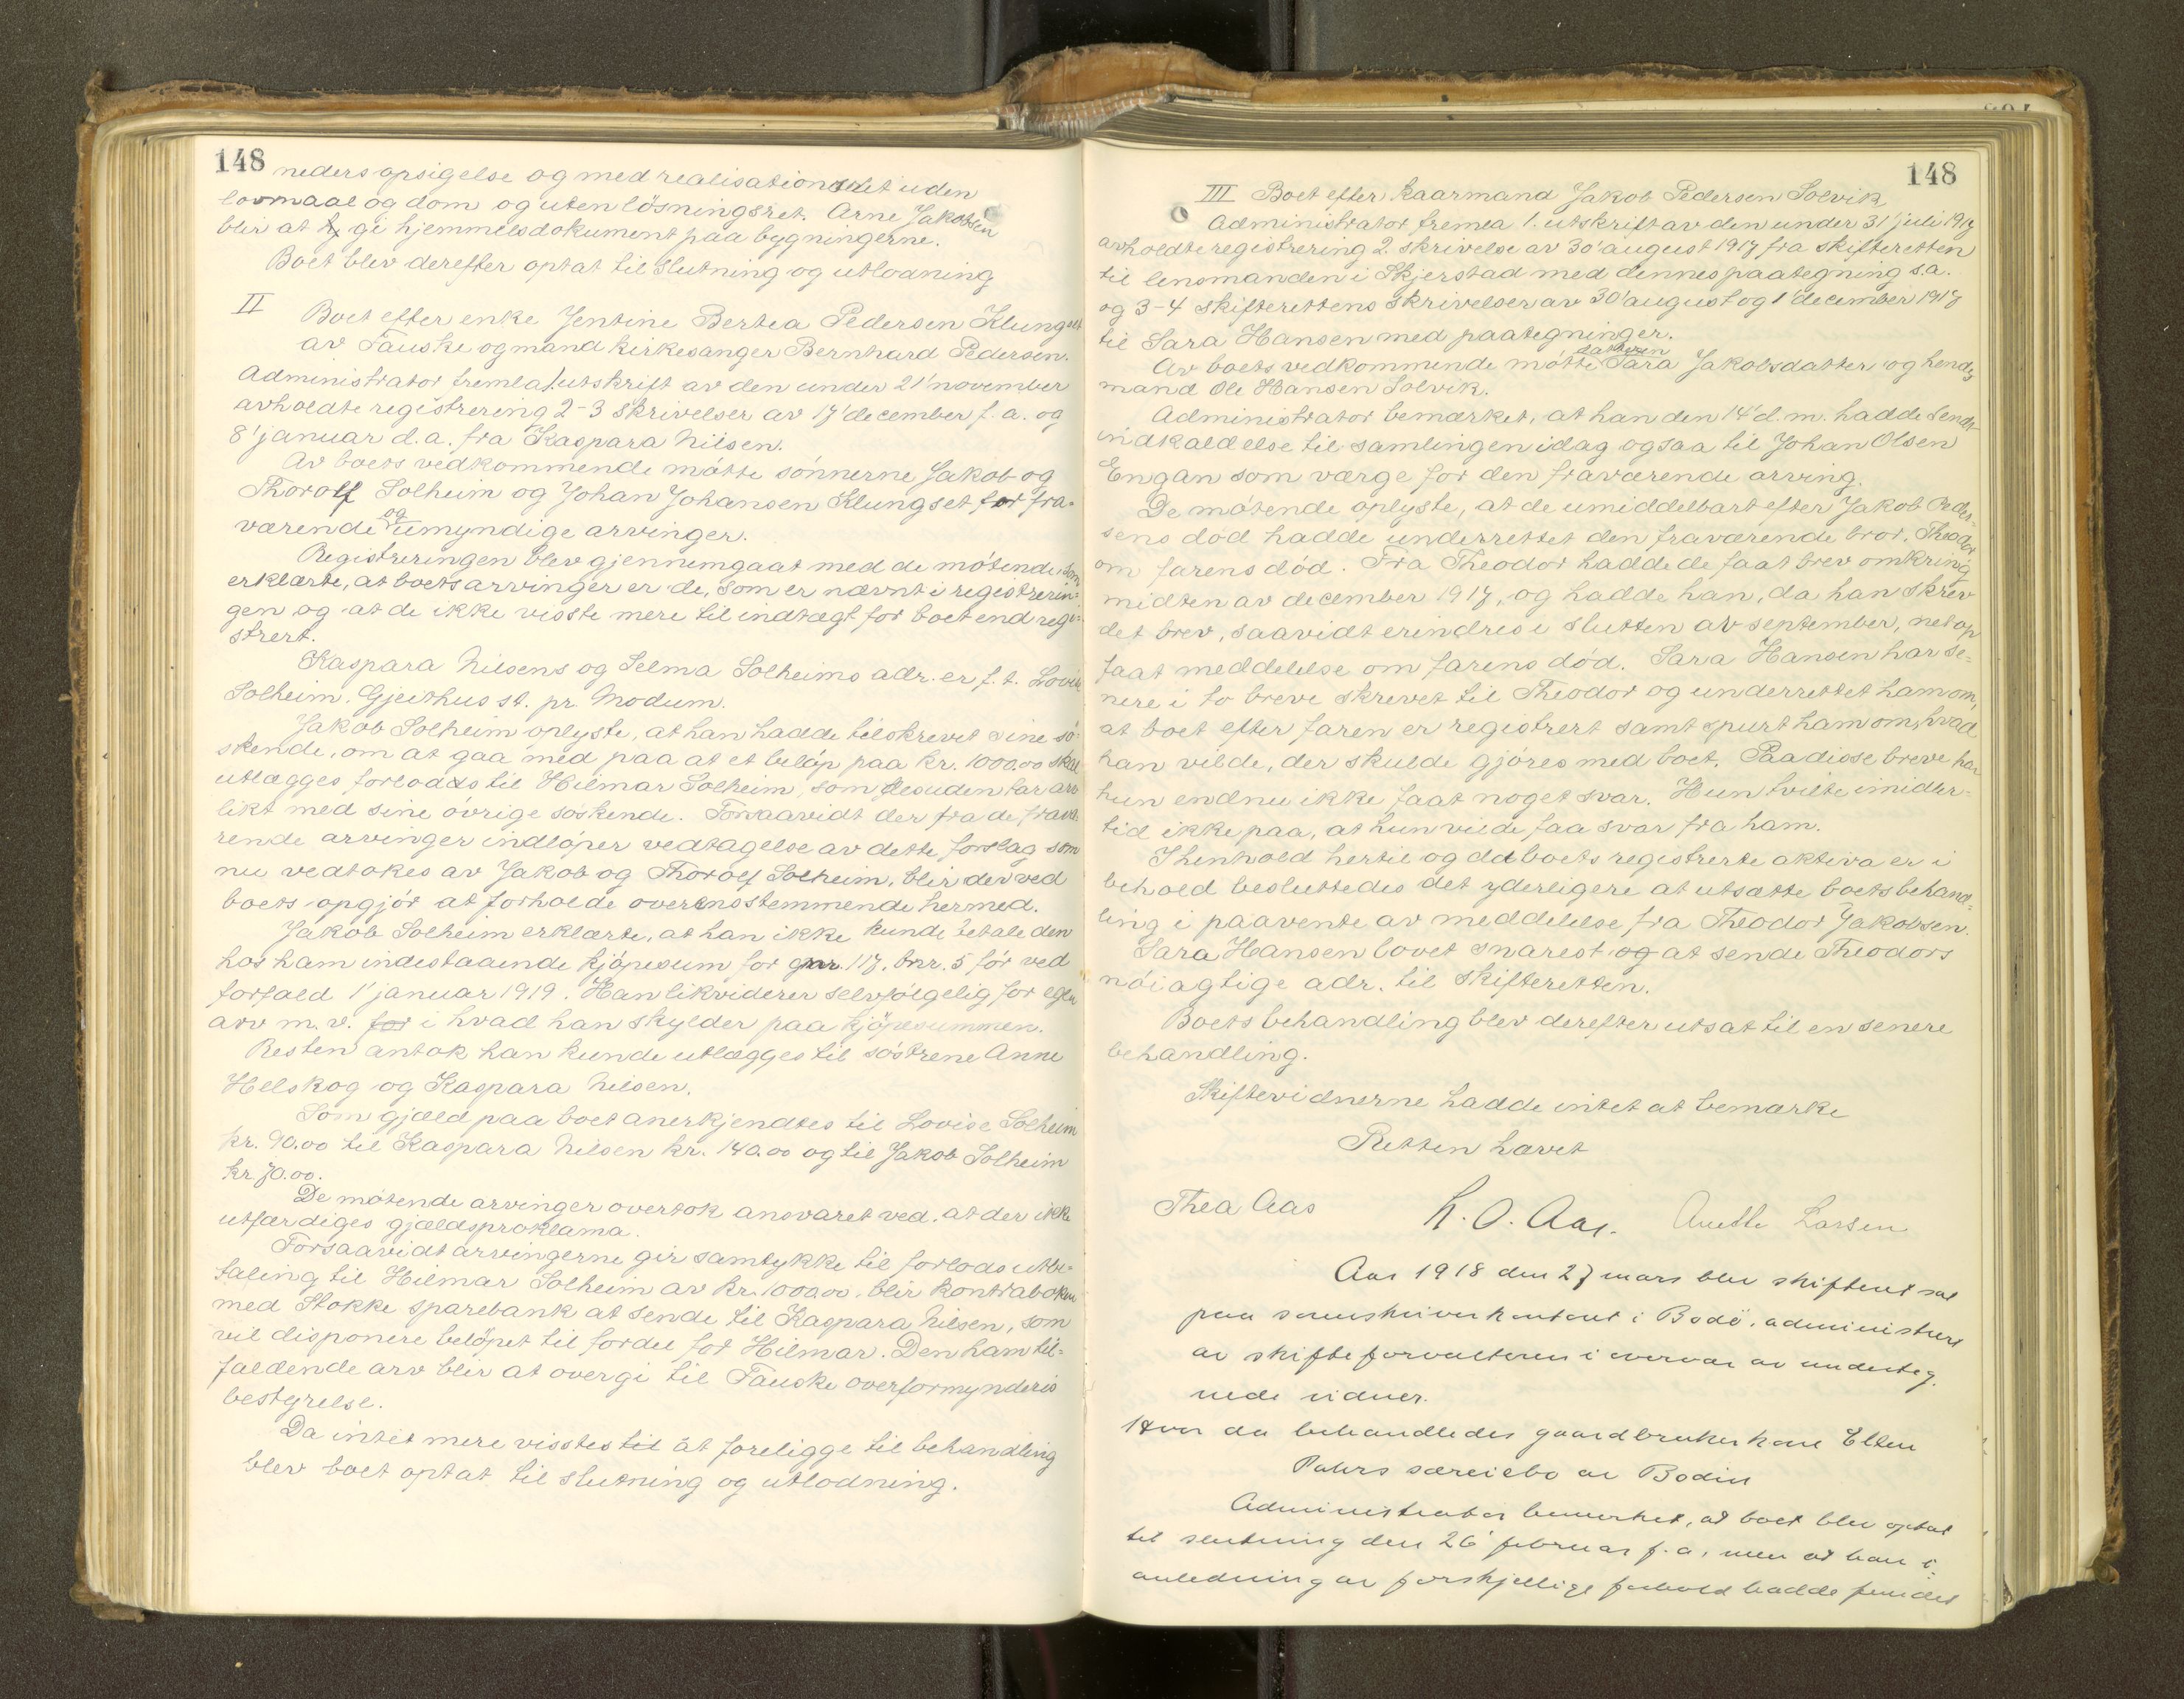 148
neders opsigelse og med realisationsret uden
lovmaal og dom og uten løsningsret. Arne Jakobsen
blir at gi hjemmelsdokument paa bygningerne.
Boet blev derefter optat til slutning og utlodning
II Boet efter enke Jentine Bertea Pedersen Klungset
av Fauske og mand kirkesanger Bernhard Pedersen.
Administrator fremla 1. utskrift av den under 21' november
avholdte registrering 2-3 skrivelser av 17' december f.a. og
8' januar d.a. fra Kaspara Nilsen.
Av boets vedkommende møtte sønnerne Jakob og
Thorolf Solheim og Johan Johansen Klungset for fra-
værende og umyndige arvinger.
Registreringen blev gjennemgaat med de møtende som
erklærte, at boets arvinger er de, som er nævnt i registrerin-
gen og at de ikke visste mere til indtægt for boet end regi-
strert.
Kaspara Nilsens og Selma Solheims adr. er f.t. Lovise
Solheim. Gjeithus st. pr. Modum.
Jakob Solheim oplyste, at han hadde tilskrevet sine sø-
skende, om at gaa med paa at et beløp paa kr. 1000.00 skal
utlægges forlods til Hilmar Solheim, som desuden tar arv
likt med sine øvrige søskende. Forsaavidt der fra de fravæ-
rende arvinger indløper vedtagelse av dette forslag som
nu vedtokes av Jakob og Thorolf Solheim, blir der ved
boets opgjør at forholde overensstemmende hermed.
Jakob Solheim erklærte, at han ikke kunde betale den
hos ham indestaaende kjøpesum for gnr. 117. bnr. 5 før ved
forfald 1' januar 1919. Han likviderer selvfølgelig for egen
arv m.v. for i hvad han skylder paa kjøpesummen.
Resten antok han kunde utlægges til søstrene Anne
Helskog og Kaspara Nilsen.
Som gjæld paa boet anerkjendtes til Lovise Solheim
kr. 90.00 til Kaspara Nilsen kr. 140.00 og til Jakob Solheim
kr 70.00.
De møtende arvinger overtok ansvaret ved, at der ikke
utfærdiges gjældsproklama.
Forsaavidt arvingerne gir samtykke til forlods utbe-
taling til Hilmar Solheim av kr. 1000.00. blir kontraboken
med Stokke sparebank at sende til Kaspara Nilsen, som
vil disponere beløpet til fordel for Hilmar. Den ham til-
faldende arv blir at overgi til Fauske overformynderis
bestyrelse.
Da intet mere visstes til at foreligge til behandling
blev boet optat til slutning og utlodning.
148
III Boet efter kaarmand Jakob Pedersen Solvik
Administrator fremla 1. utskrift av den under 31' juli 1917
avholdte registrering 2. skrivelse av 30' august 1917 fra skifteretten
til lensmanden i Skjerstad med dennes paategning s.a.
og 3-4 skifterettens skrivelser av 30' august og 1' december 1917
til Sara Hansen med paategninger.
Av boets vedkommende møtte datteren Sara Jakobsdatter og hendes
mand Ole Hansen Solvik.
Administrator bemærket, at han den 14' d.m. hadde sendt
indkaldelse til samlingen idag ogsaa til Johan Olsen
Engan som værge for den fraværende arving.
De møtende oplyste, at de umiddelbart efter Jakob Peder-
sens død hadde underrettet den fraværende bror, Theodor
om farens død. Fra Theodor hadde de faat brev omkring
midten av december 1917, og hadde han, da han skrev
det brev, saavidt erindres i slutten av september, netop
faat meddelelse om farens død. Sara Hansen har se-
nere i to breve skrevet til Theodor og underrettet ham om,
at boet efter faren er registrert samt spurt ham om, hvad
han vilde, der skulde gjøres med boet. Paa disse breve har
hun endnu ikke faat noget svar. Hun tvilte imidler-
tid ikke paa, at hun vilde faa svar fra ham.
I henhold hertil og da boets registrerte aktiva er i
behold besluttedes det yderligere at utsætte boets behand-
ling i paavente av meddelelse fra Theodor Jakobsen.
Sara Hansen lovet snarest og at sende Theodors
nøiagtige adr. til skifteretten.
Boets behandling blev derefter utsat til en senere
behandling.
Skiftevidnerne hadde intet at bemærke
Retten hævet
Thea Aas K. O. Aas. Anette Larsen
Aar 1918 den 27 mars blev skifteret sat
paa sorenskriverkontoret i Bodø, administrert
av skifteforvalteren i overvær av underteg-
nede vidner.
Hvor da behandledes gaardbrukerkone Ellen
særeiebo av Bodin
Administrator bemerket, at boet blev optat
til slutning den 26' februar f.a., men at han i
anledning av forskjellige forhold hadde fundet